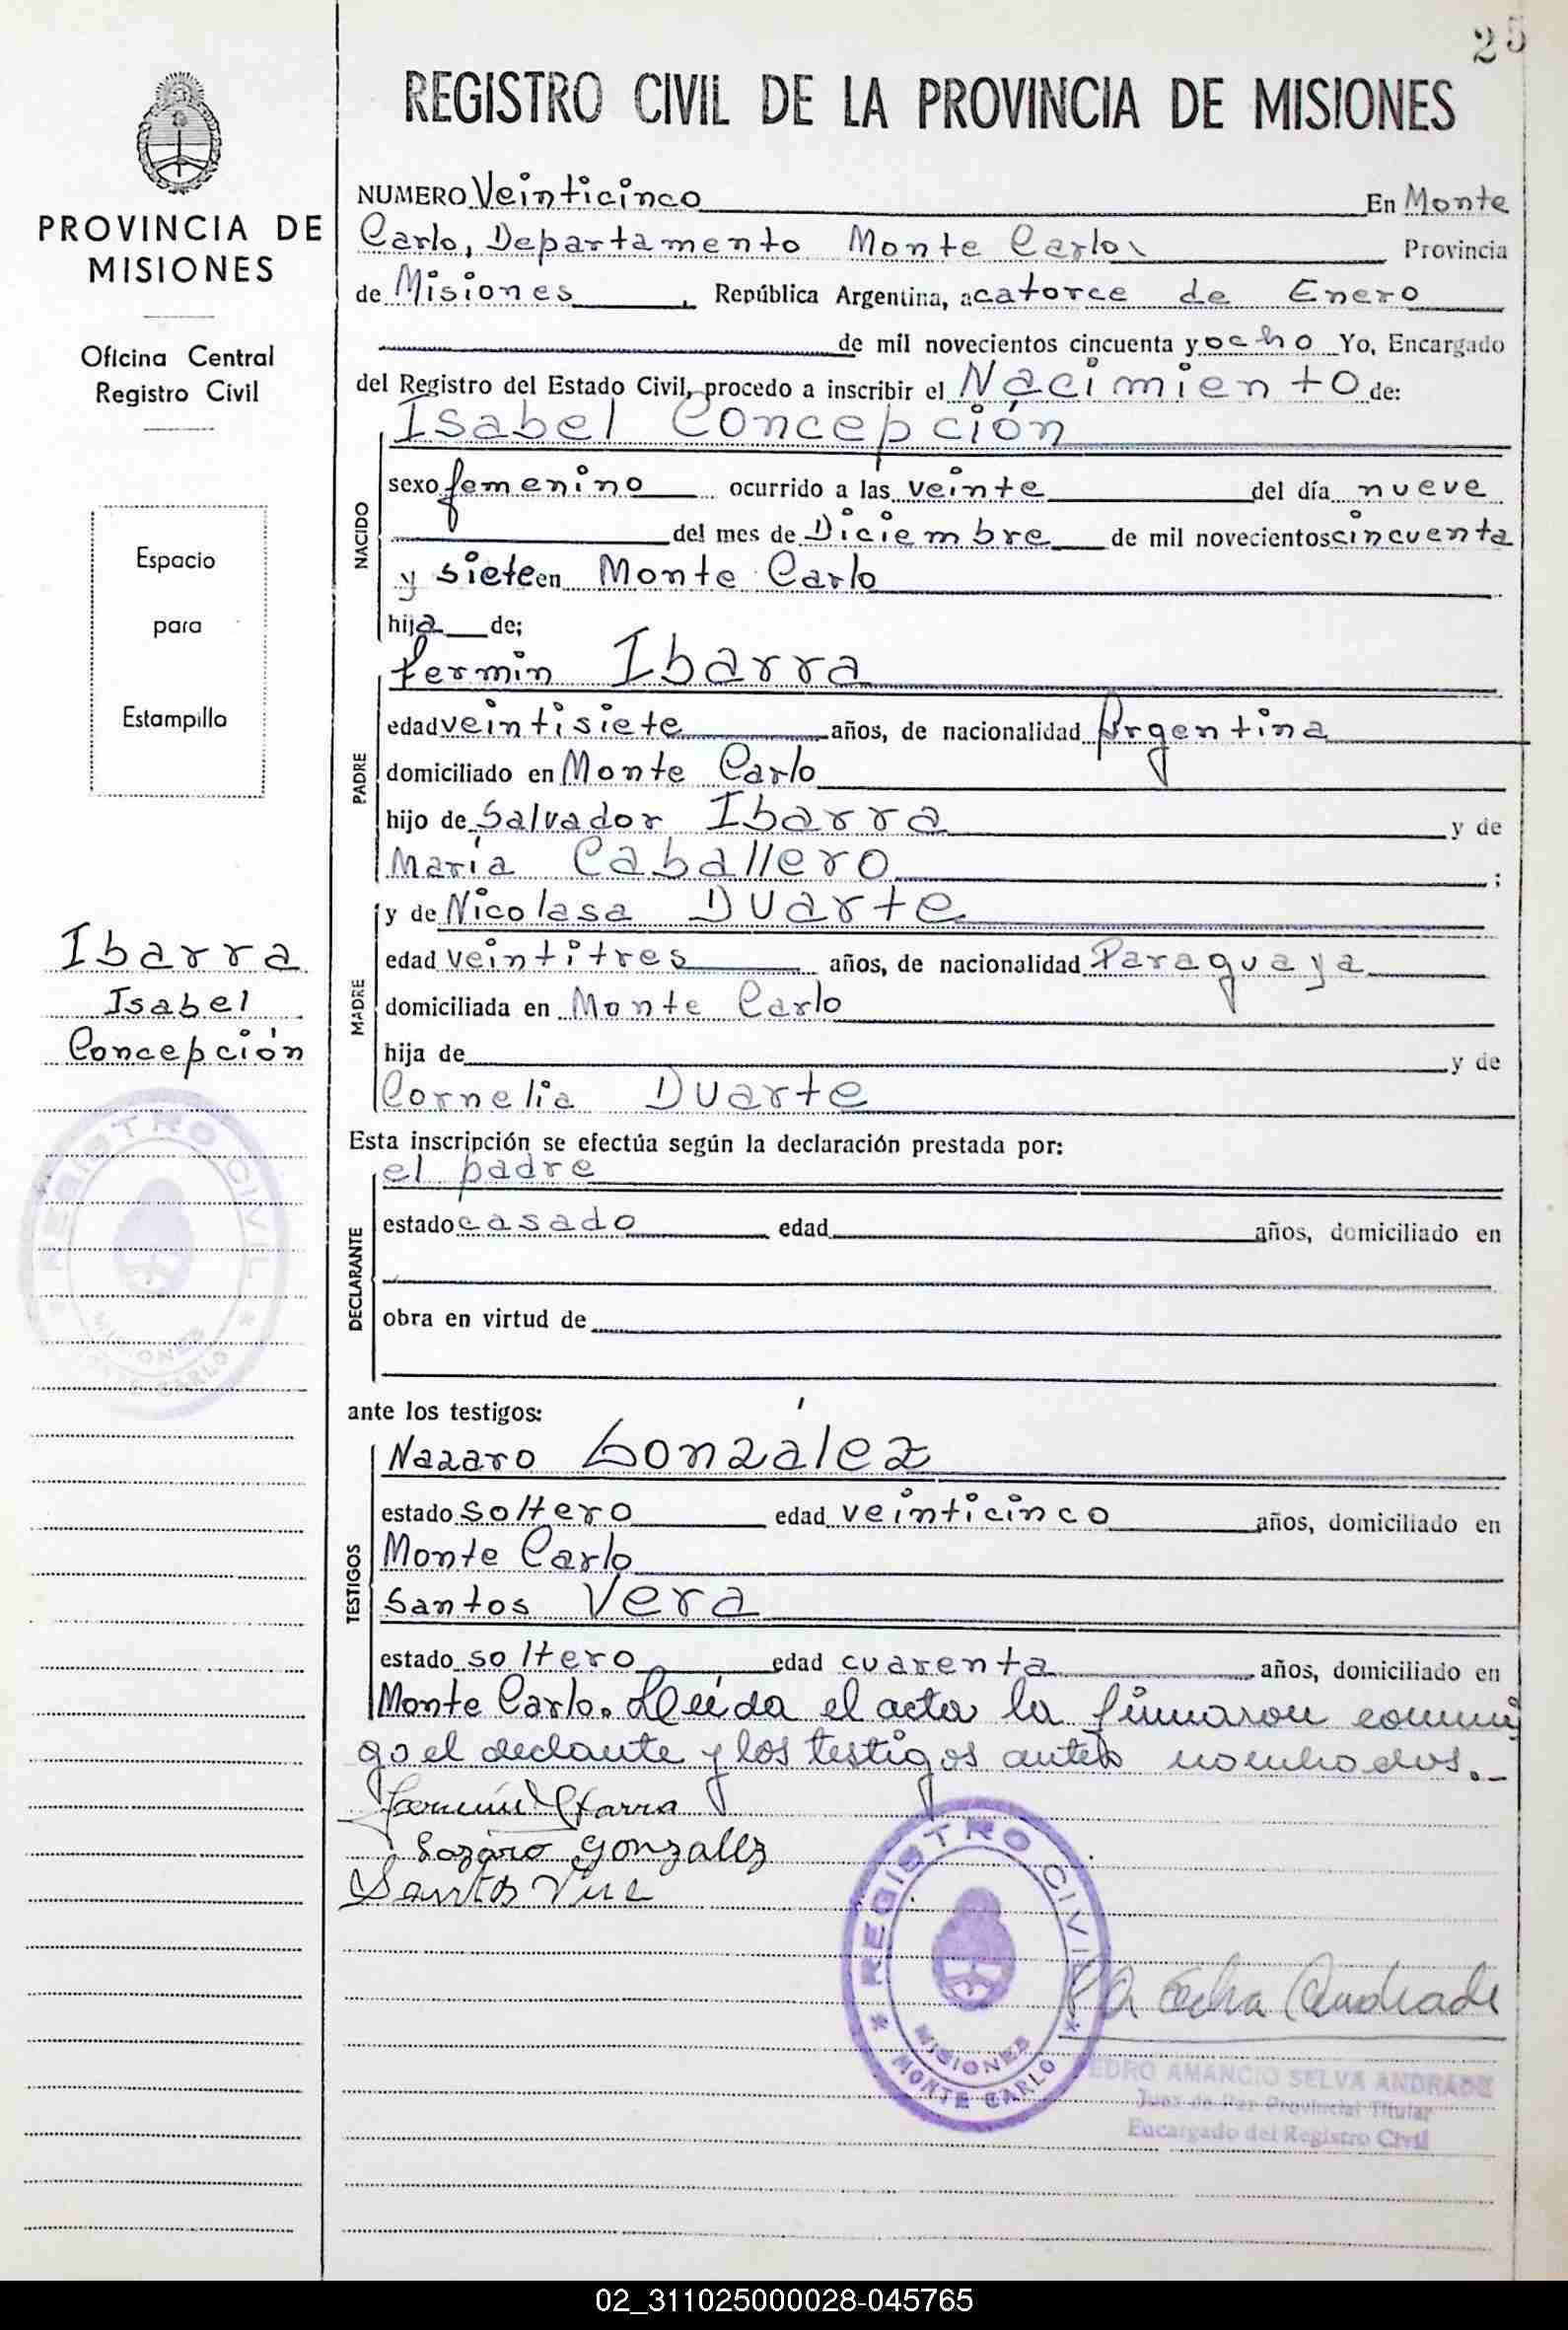 25
REGISTRO CIVIL DE LA PROVINCIA DE MISIONES
PROVINCIA DE
MISIONES
Oficina Central
Registro Civil
Espacio
para
Estampilla
Ibarra
Isabel
Concepción
REGISTRO CIVIL
MISIONES
CARLO
NUMERO Veinticinco En Monte
Carlo, Departamento Monte Carlo Provincia
de Misiones, República Argentina, a catorce de Enero
de mil novecientos cincuenta y ocho Yo, Encargado
del Registro del Estado Civil, procedo a inscribir el Nacimiento de:
NACIDO
Isabel Concepción
sexo femenino ocurrido a las veinte del día nueve
del mes de Diciembre de mil novecientos cincuenta
y siete en Monte Carlo
hija de;
PADRE
fermin Ibarra
edad veintisiete años, de nacionalidad Argentina
domiciliado en Monte Carlo
hijo de Salvador Ibarra y de
María Caballero ;
MADRE
y de Nicolasa Duarte
edad veintitres años, de nacionalidad Paraguaya
domiciliada en Monte Carlo
hija de y de
Cornelia Duarte
Esta inscripción se efectúa según la declaración prestada por:
DECLARANTE
el padre
estado casado edad años, domiciliado en
obra en virtud de
ante los testigos:
TESTIGOS
Nazaro González
estado soltero edad veinticinco años, domiciliado en
Monte Carlo
Santos Vera
estado soltero edad cuarenta años, domiciliado en
Monte Carlo. Leída el acta la firmaron conmi
go el declante y los testigos antes nombrados.-
Fermín Ibarra
Lazaro gonzallez
Santos
REGISTRO CIVIL
MISIONES
MONTE CARLO
Andrade
PEDRO AMANCIO SELVA ANDRADE
Juez de Paz Provincial Titular
Encargado del Registro Civil
02_311025000028-045765